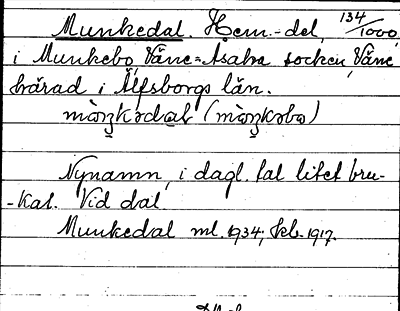 Munkedal. Hem.-del, 134/1000,
i Munkebo, Väne-Åsaka socken, Väne
härad i Älfsborgs län.
Nynamn, i dagl. tal litet bru-
-kat. Vid dal
Munkedal ml. 1934; kb. 1917.